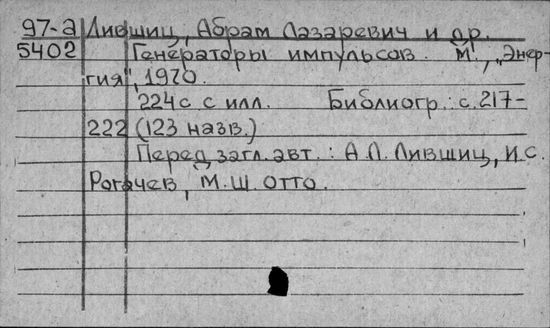 97-а Лившиц, Абрам Лазаревич и др.
5402 Генераторы импульсов. М., „Энер-
гия", 1970.
224с. с илл. Библиогр.: с.217-
222 (123 назв.)
Перед загл. авт.: А.Л. Лившиц, И.С.
Рогачев, М.Ш. Отто.